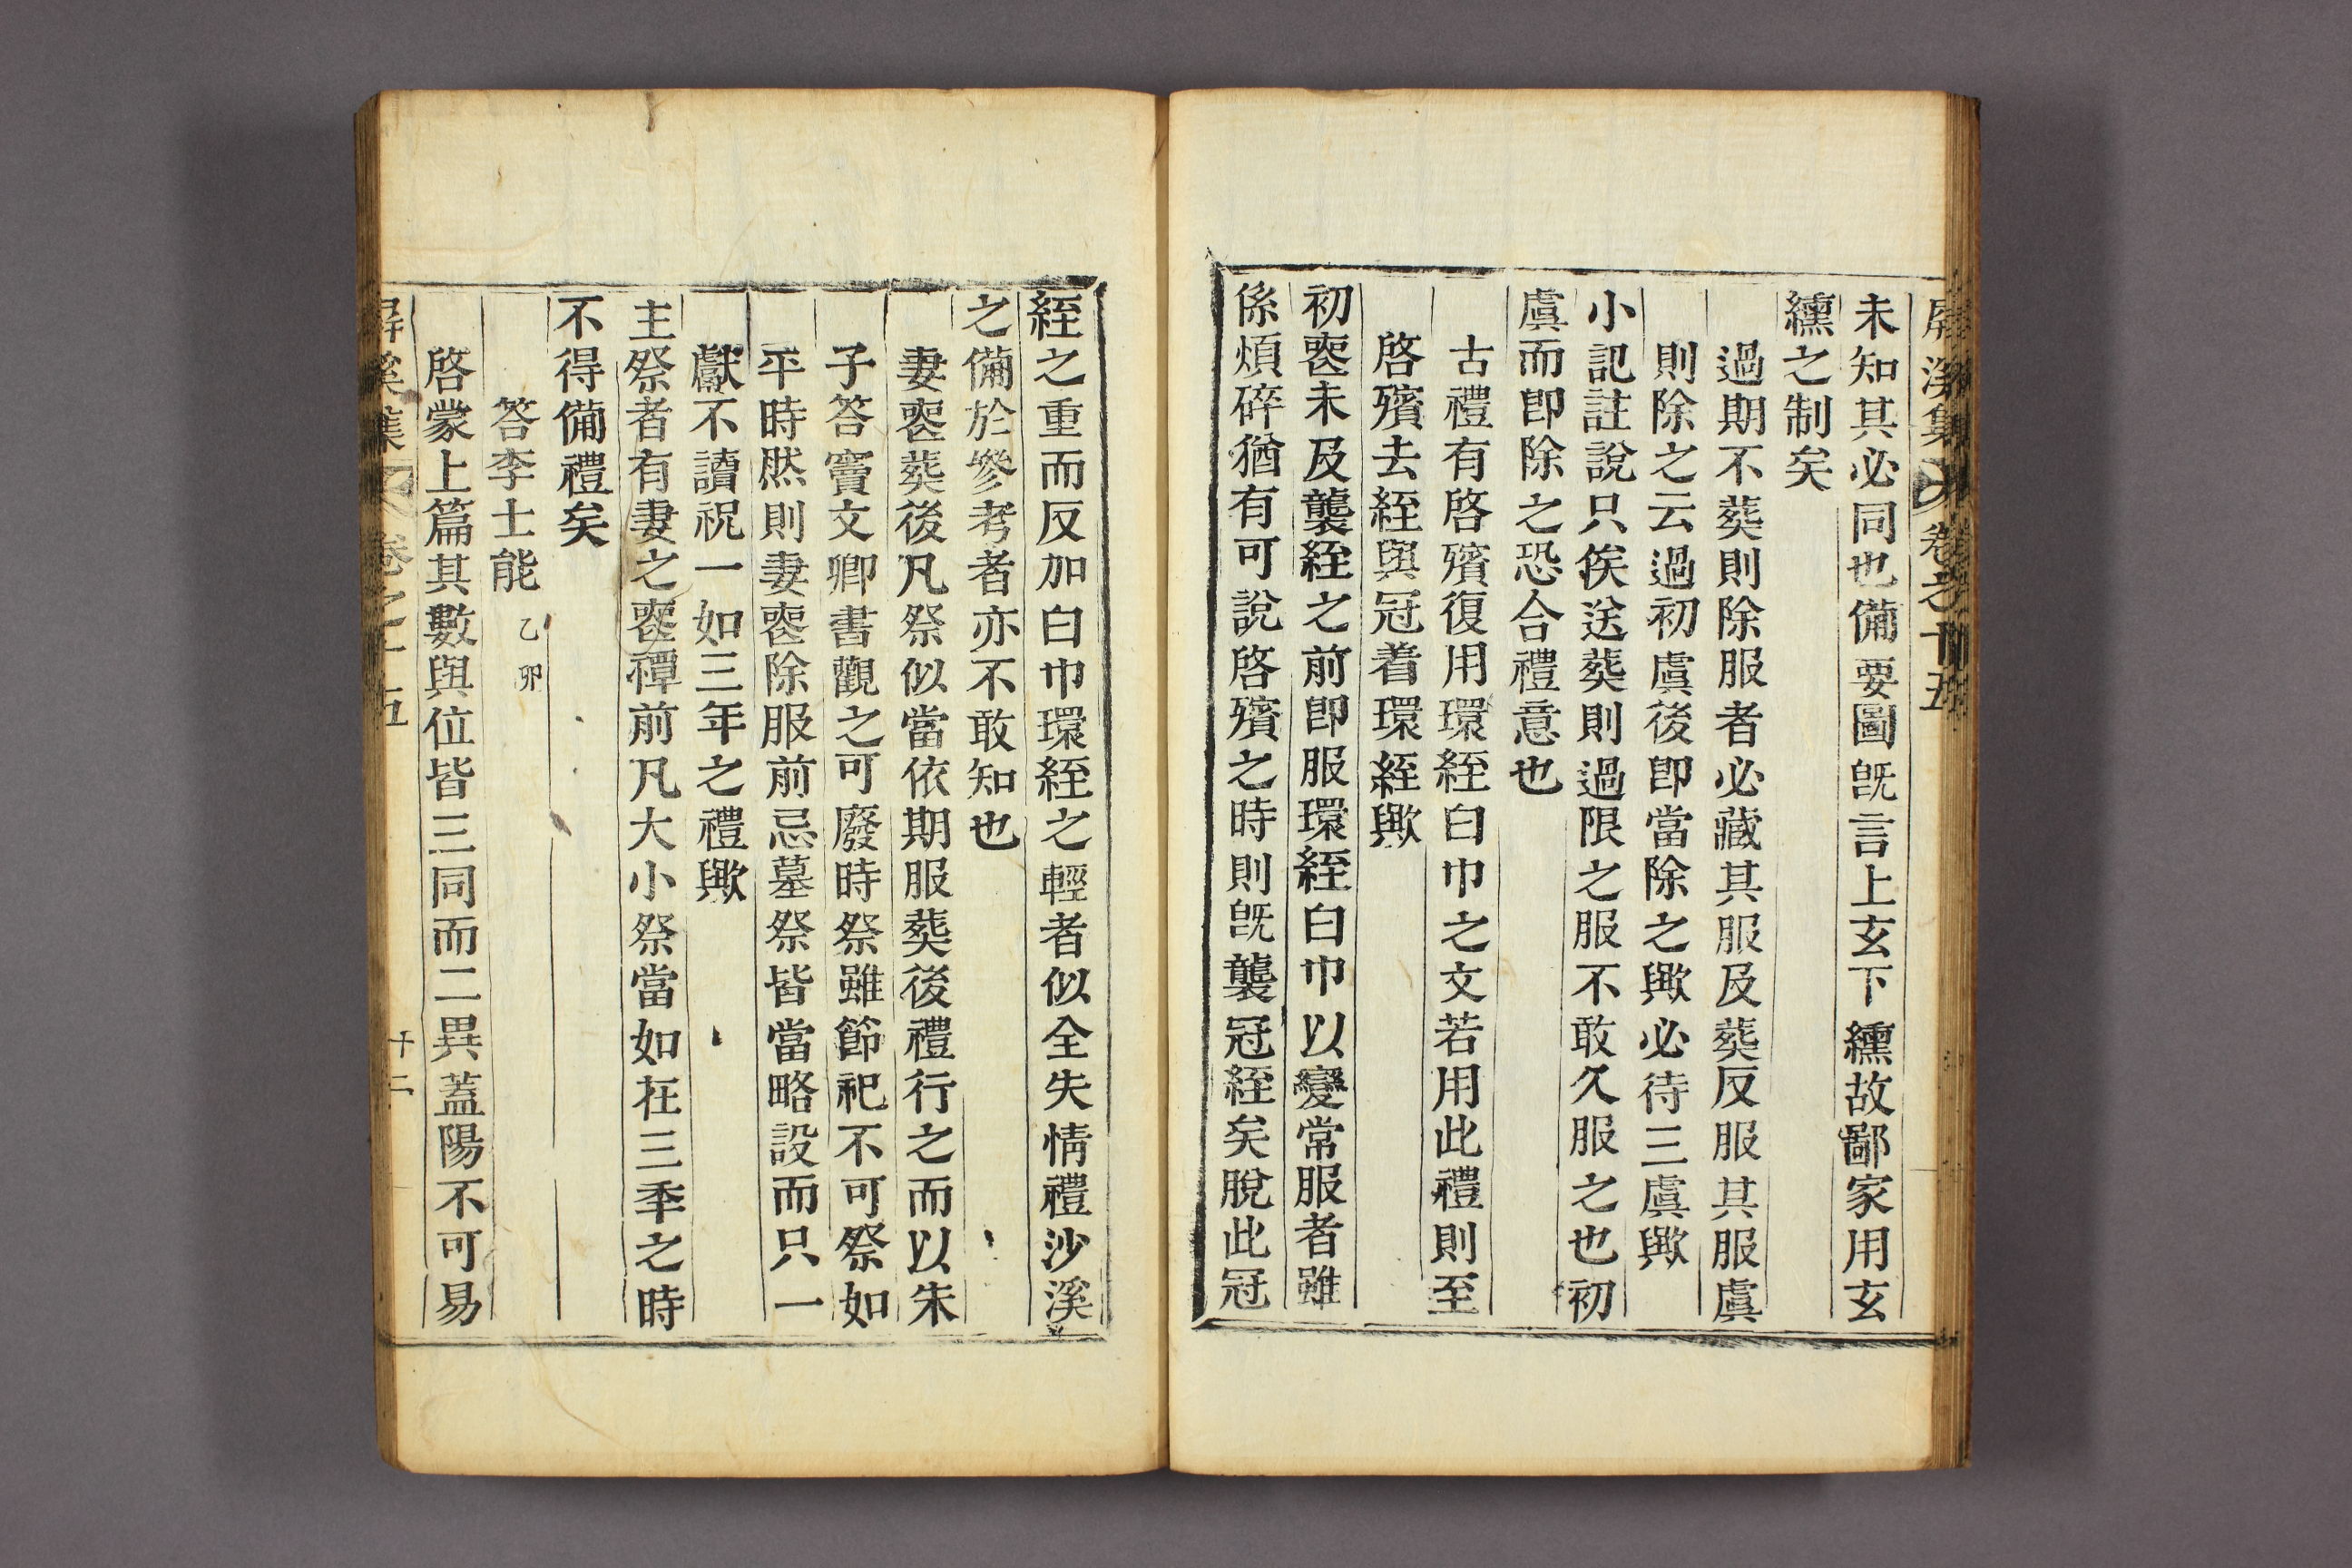 屛溪集 卷之十五
未知其必同也備要圖旣言上玄下纁故鄙家用玄
纁之制矣
過期不葬則除服者必藏其服及葬反服其服虞
則除之云過初虞後卽當除之歟必待三虞歟
小記註說只俟送葬則過限之服不敢久服之也初
虞而卽除之恐合禮意也
古禮有啓殯復用環絰白巾之文若用此禮則至
啓殯去絰與冠着環絰歟
初喪未及襲絰之前卽服環絰白巾以變常服者雖
係煩碎猶有可說啓殯之時則旣襲冠絰矣脫此冠
絰之重而反加白巾環絰之輕者似全失情禮沙溪
之備於參考者亦不敢知也
妻喪葬後凡祭似當依期服葬後禮行之而以朱
子答竇文卿書觀之可廢時祭雖節祀不可祭如
平時然則妻喪除服前忌墓祭皆當略設而只一
獻不讀祝一如三年之禮歟
主祭者有妻之喪禫前凡大小祭當如在三年之時
不得備禮矣
答李士能 乙卯
啓蒙上篇其數與位皆三同而二異蓋陽不可易
屛溪集 卷之十五 十二